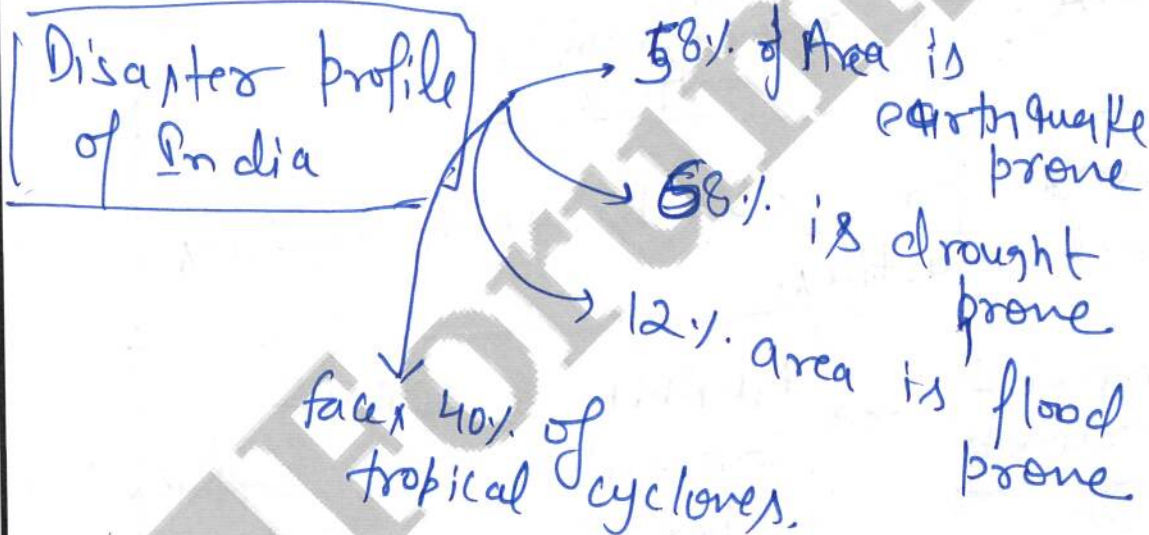 Disaster profile
of India
58% of Area is
earthquake
prone
68% is drought
prone
12% area is flood
prone
faces 40% of
tropical cyclones.
Forum